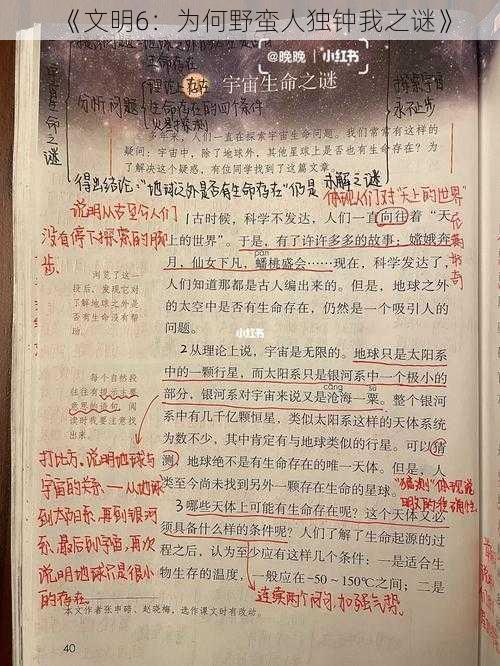 《文明6：为何野蛮人独钟我之谜》
@晚晚 | 小红书
宇宙生命之谜
宇宙生命之谜
生命存在
分析问题
理论上存在
生命存在的四个条件
探索宇宙
永不止步
多少年来，人们一直在探索宇宙生命问题。我们常常有这样的
疑问：宇宙中，除了地球外，其他星球上是否也有生命存在？为
了解决这个疑惑，有位同学找到了这篇文章。
得出结论："地球之外是否有生命存在"仍是未解之谜
体现人们对"天上的世界"
说明从古至今人们
没有停下对探索的脚
步。
1古时候，科学不发达，人们一直向往着“天
上的世界”。于是，有了许许多多的故事：嫦娥奔
pán
月，仙女下凡，蟠桃盛会……现在，科学发达了，
人们知道那都是古人编出来的。但是，地球之外
的太空中是否有生命存在，仍然是一个吸引人的
问题。
浏览了这一
段后，发现它对
了解地球之外是
否有生命没有帮
助。
小红书
2从理论上说，宇宙是无限的。地球只是太阳系
中的一颗行星，而太阳系只是银河系中一个极小的
cāng sù
部分，银河系对宇宙来说又是沧海一粟。整个银河
系中有几千亿颗恒星，类似太阳系这样的天体系统
为数不少，其中肯定有与地球类似的行星。可以猜
测，地球绝不是有生命存在的唯一天体。但是，人
类至今尚未找到另外一颗存在生命的星球。
每个自然段
往往有提示主要
意思的语句，阅
读时我要注意找
出来。
打比方，说明地球与
宇宙的关系——从地球
到太阳系，再到银河
系，最后到宇宙，再次
说明地球只是很小
的存在。
"猜测"体现说
明文的准确性。
3哪些天体上可能有生命存在呢？这个天体又必
须具备什么样的条件呢？人们了解了生命起源的过
程之后，认为至少应有这样几个条件：一是适合生
物生存的温度，一般应在-50～150℃之间；二是
连续两个问句，加强气势。
本文作者张申碚、赵晓梅，选作课文时有改动。
40